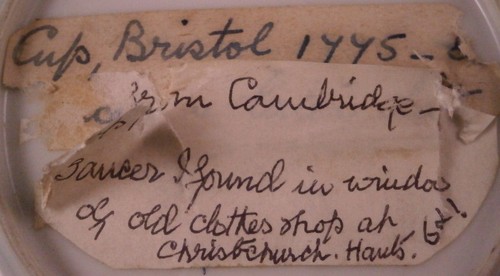 Cup, Bristol 1775 –
from Cambridge –
saucer I found in window
of old clothes shop at
Christchurch. Hants. 6d!